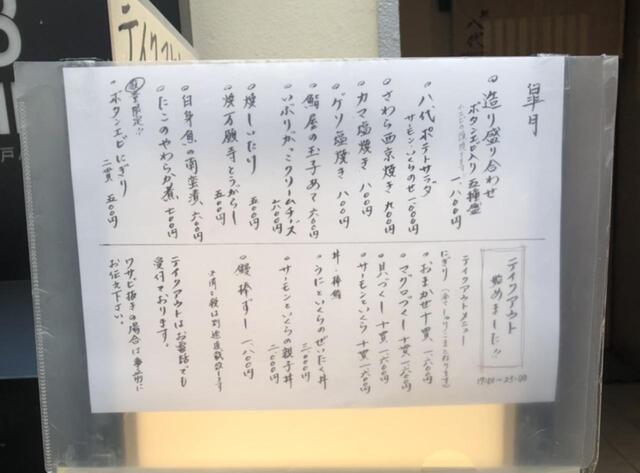 皐月
造り盛り合わせ
ボタンエビ入り 五種盛
一、八〇〇円
八代ポテトサラダ
サーモンいくらのせ 一、〇〇〇円
さわら西京焼き 九〇〇円
カマ塩焼き 八〇〇円
ゲソ塩焼き 八〇〇円
鮨屋の玉子あて 六〇〇円
いぶりがっこクリームチーズ
六〇〇円
焼しいたけ 五〇〇円
焼万願寺とうがらし
五〇〇円
白身魚の南蛮漬 六〇〇円
たこのやわらか煮 七〇〇円
限定!!
ボタンエビにぎり
二貫 五〇〇円
テイクアウト
始めました!!
17:00〜23:00
テイクアウトメニュー
にぎり
おまかせ十貫 一、六〇〇円
マグロづくし十貫 一、六〇〇円
貝づくし十貫 一、六〇〇円
サーモンといくら十貫 一、六〇〇円
丼・棒鮨
うにといくらのぜいたく丼
三、〇〇〇円
サーモンといくらの親子丼
二、〇〇〇円
鰻棒すし 一、八〇〇円
テイクアウトはお電話でも
受付ております。
ワサビ抜きの場合は事前に
お伝え下さい。
テイクアウト
八代